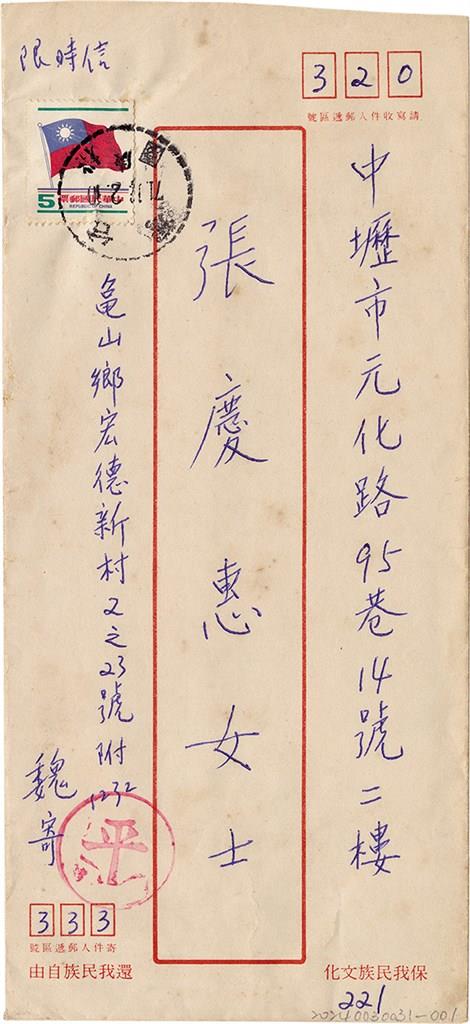 限時信
320
請寫收件人郵遞區號
中壢市元化路95巷14號二樓
張慶惠女士
5
中華民國郵票
REPUBLIC OF CHINA
台
71.12.10
龜山鄉宏德新村2之23號附1232
魏寄
平
333
寄件人郵遞區號
還我民族自由
保我民族文化
221
20240030031-001